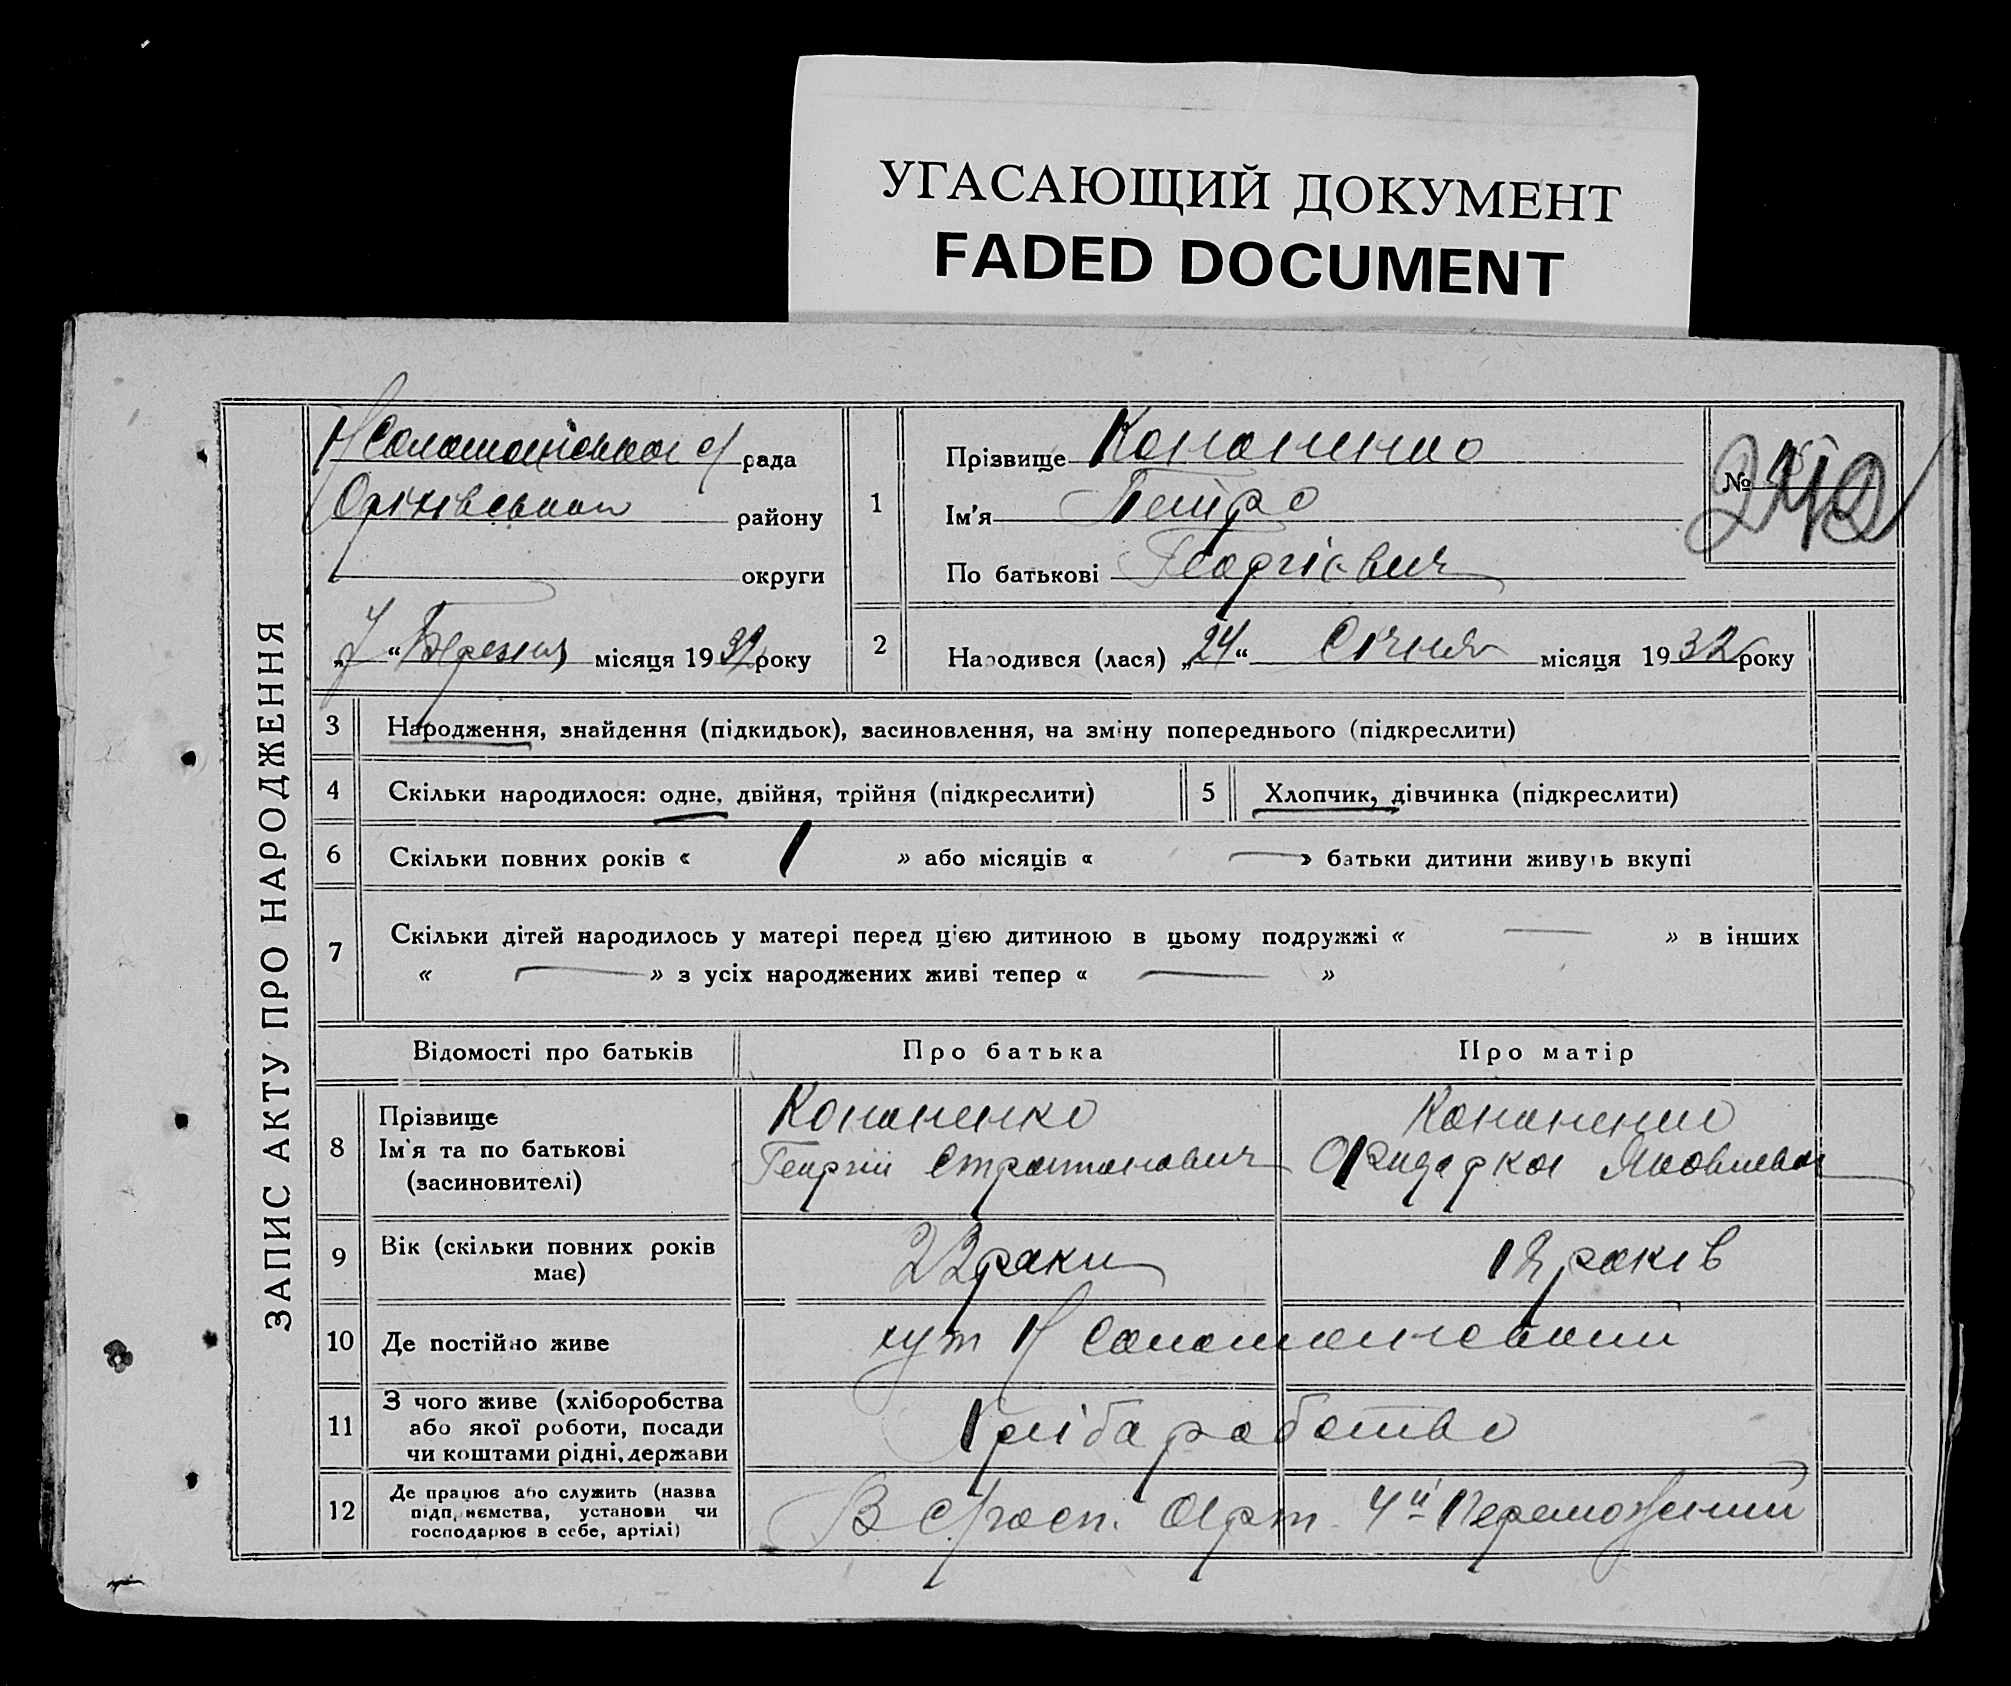 УГАСАЮЩИЙ ДОКУМЕНТ
FADED DOCUMENT
ЗАПИС АКТУ ПРО НАРОДЖЕННЯ
рада
району
округи
„7“ Березня місяця 1932 року
1
Прізвище Кононенко
Ім'я Петро
По батькові Георгієвич
№ 242
2
Народився (лася) „24“ Січня місяця 1932 року
3 Народження, знайдення (підкидьок), засиновлення, на зміну попереднього (підкреслити)
4 Скільки народилося: одне, двійня, трійня (підкреслити)
5 Хлопчик, дівчинка (підкреслити)
6 Скільки повних років « 1 » або місяців « — » батьки дитини живуть вкупі
7 Скільки дітей народилось у матері перед цією дитиною в цьому подружжі « — » в інших
« — » з усіх народжених живі тепер « — »
Відомості про батьків
Про батька
Про матір
8
Прізвище
Ім'я та по батькові
(засиновителі)
Кононенко
Георгій
Кононенко
Яковлевна
9
Вік (скільки повних років
має)
22 роки
18 років
10 Де постійно живе
хут Н
11
З чого живе (хліборобства
або якої роботи, посади
чи коштами рідні, держави
Хліборобство
12
Де працює або служить (назва
підприємства, установи чи
господарює в себе, артілі)
В с/госп. Арт. 4й Переможений